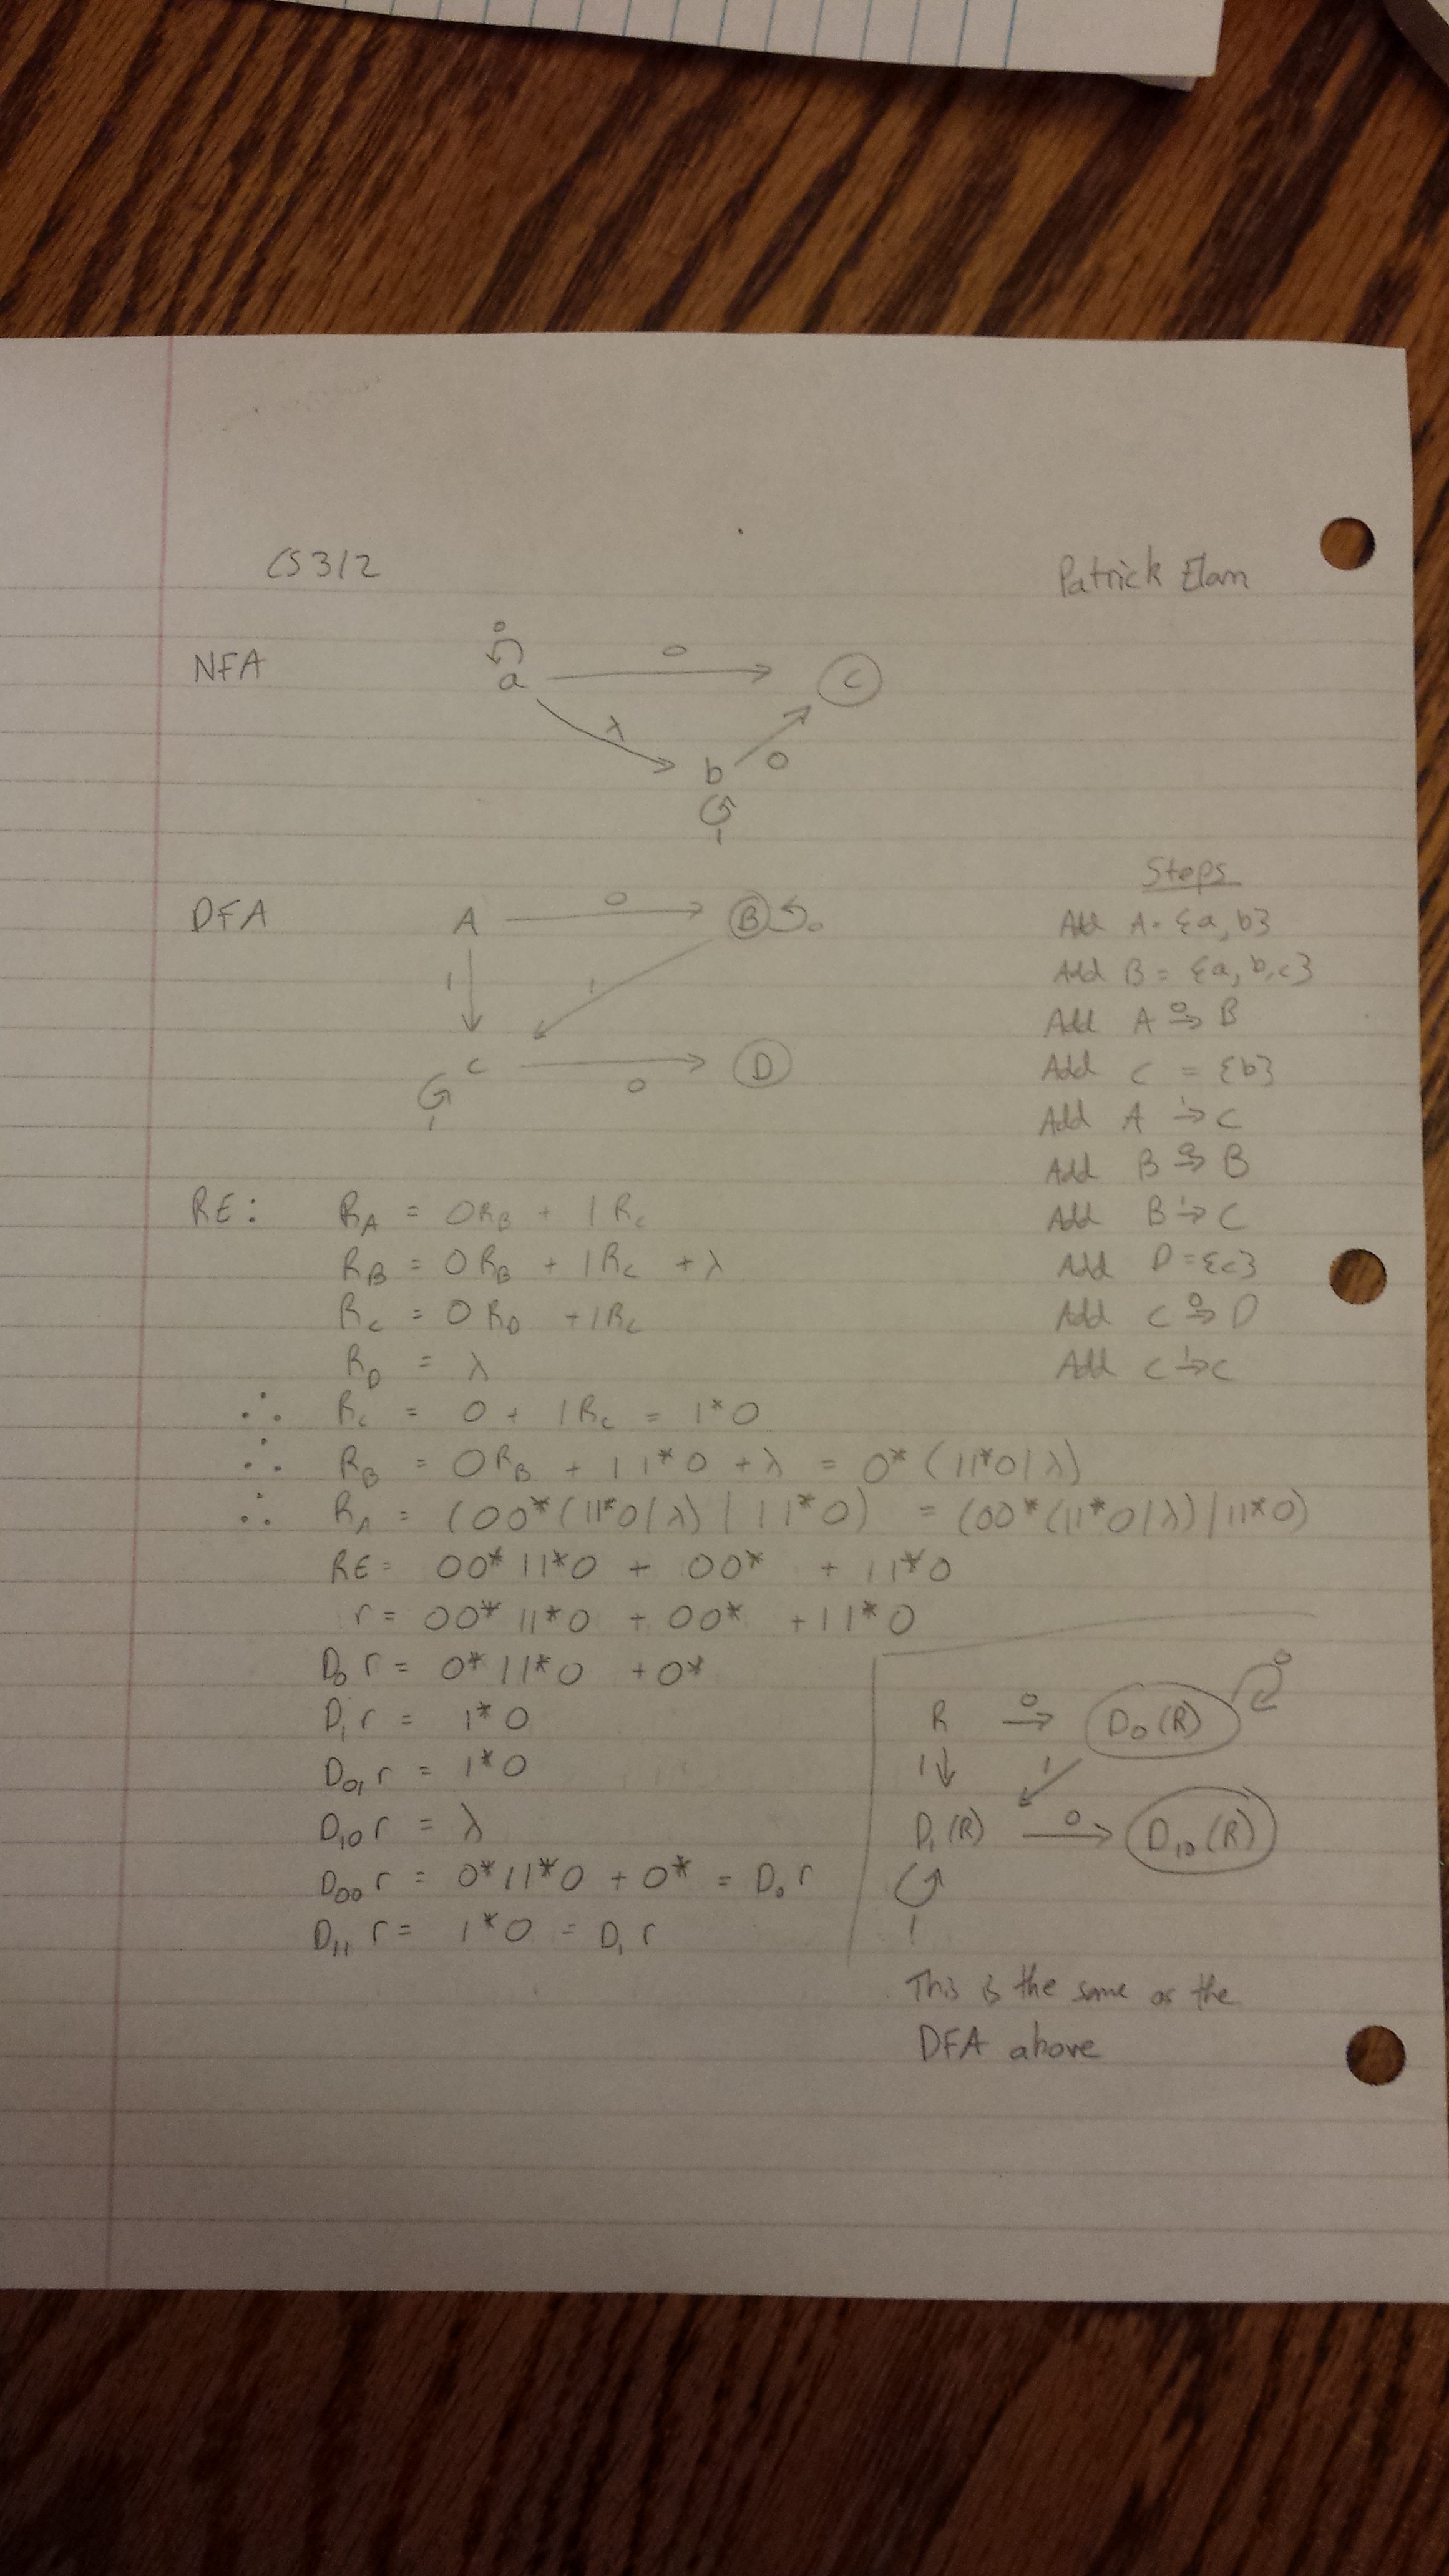 CS312
Patrick Elam
NFA
0
a
0
C
λ
b
0
1
DFA
A
0
B
0
1
1
C
0
D
1
Steps
Add A = {a, b}
Add B = {a, b, c}
Add A 0→ B
Add C = {b}
Add A 1→ C
Add B 0→ B
Add B 1→ C
Add D = {c}
Add C 0→ D
Add C 1→ C
RE: R_A = 0R_B + 1R_C
R_B = 0R_B + 1R_C + λ
R_C = 0R_D + 1R_C
R_D = λ
∴ R_C = 0 + 1R_C = 1*0
∴ R_B = 0R_B + 11*0 + λ = 0*(11*0|λ)
∴ R_A = (00*(11*0|λ) | 11*0) = (00*(11*0|λ)|11*0)
RE = 00*11*0 + 00* + 11*0
r = 00*11*0 + 00* + 11*0
D_0 r = 0*11*0 + 0*
D_1 r = 1*0
D_01 r = 1*0
D_10 r = λ
D_00 r = 0*11*0 + 0* = D_0 r
D_11 r = 1*0 = D_1 r
0
R 0→ D_0(R)
1↓ 1
D_1(R) 0→ D_10(R)
1
This is the same as the
DFA above